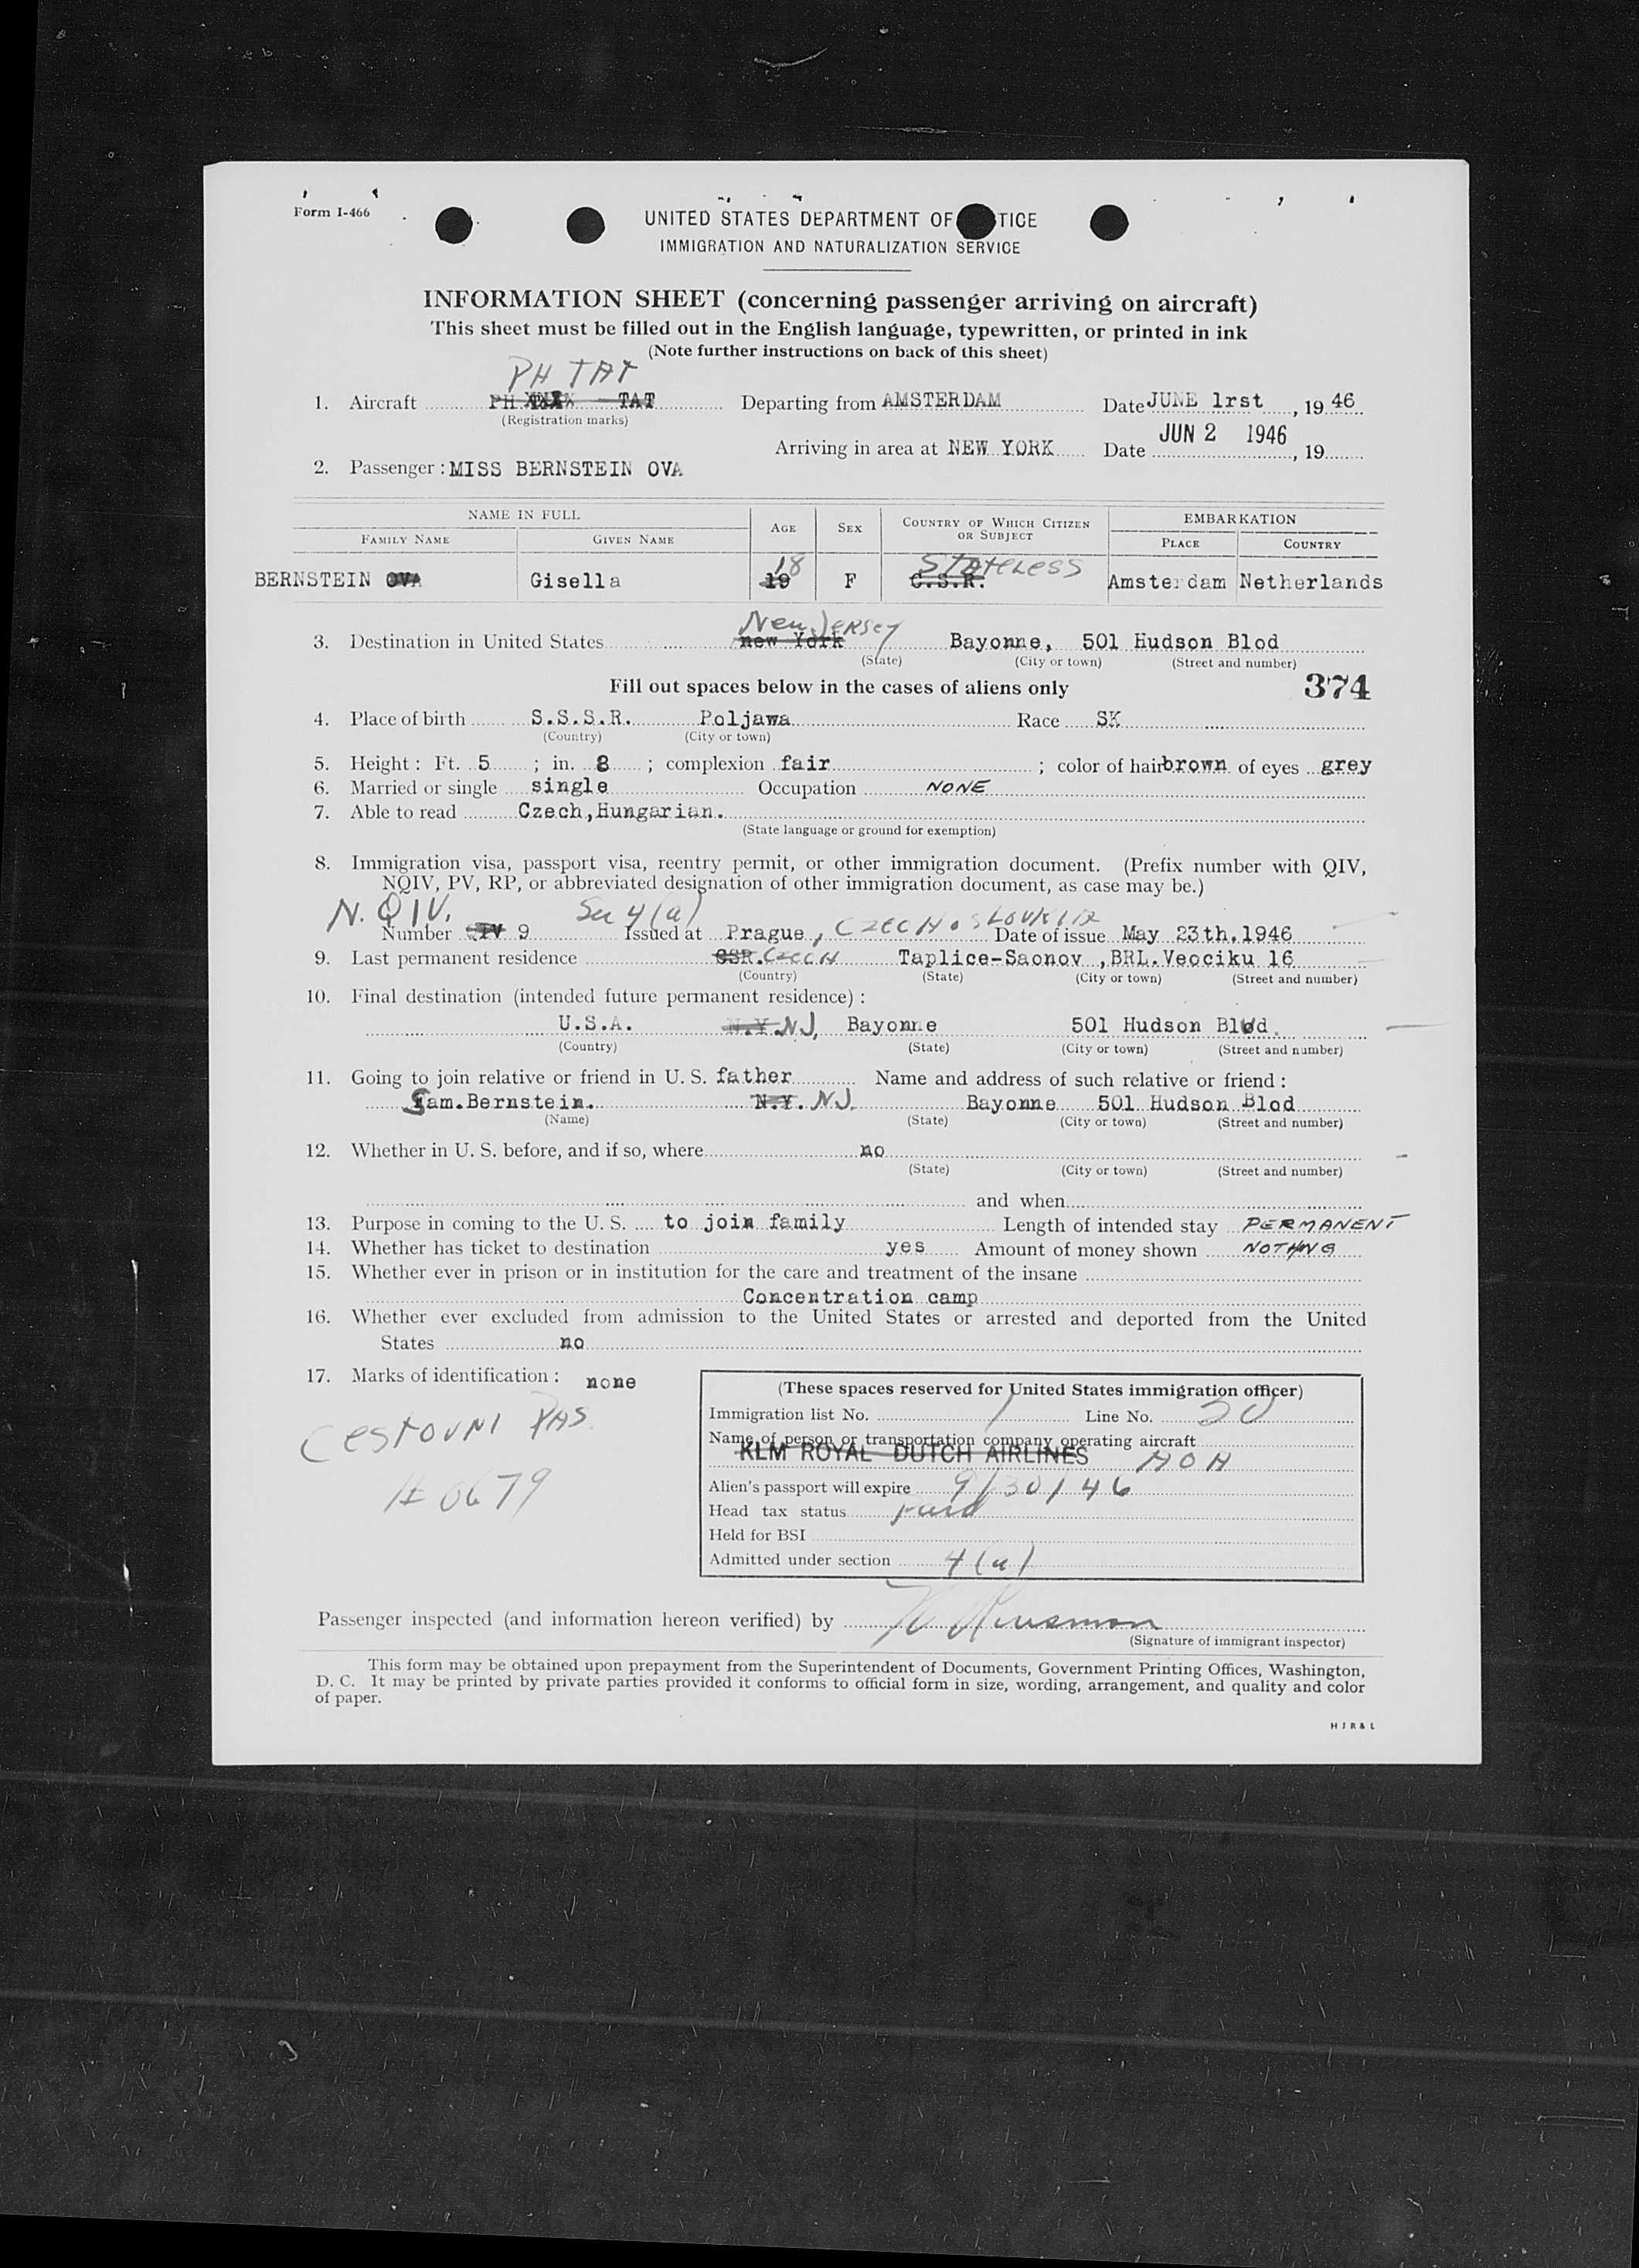 Form I-466
UNITED STATES DEPARTMENT OF TICE
IMMIGRATION AND NATURALIZATION SERVICE
INFORMATION SHEET (concerning passenger arriving on aircraft)
This sheet must be filled out in the English language, typewritten, or printed in ink
(Note further instructions on back of this sheet)
PH TAT
1. Aircraft PH TAT Departing from AMSTERDAM Date JUNE 1rst, 19 46
(Registration marks)
JUN 2 1946
Arriving in area at NEW YORK Date , 19
2. Passenger: MISS BERNSTEIN OVA
NAME IN FULL AGE SEX COUNTRY OF WHICH CITIZEN OR SUBJECT EMBARKATION
FAMILY NAME GIVEN NAME PLACE COUNTRY
18 STATELESS
BERNSTEIN OVA Gisella 19 F C.S.R. Amsterdam Netherlands
New Jersey
3. Destination in United States new York Bayonne, 501 Hudson Blod
(State) (City or town) (Street and number)
Fill out spaces below in the cases of aliens only 374
4. Place of birth S.S.S.R. Poljawa Race SK
(Country) (City or town)
5. Height: Ft. 5 ; in. 8 ; complexion fair ; color of hair brown of eyes grey
6. Married or single single Occupation NONE
7. Able to read Czech,Hungarian.
(State language or ground for exemption)
8. Immigration visa, passport visa, reentry permit, or other immigration document. (Prefix number with QIV,
NQIV, PV, RP, or abbreviated designation of other immigration document, as case may be.)
N. QIV. Sec 4(a)
Number QIV 9 Issued at Prague, CZECHOSLOVKIA Date of issue May 23th.1946
9. Last permanent residence CSR. CZECH Taplice-Saonov ,BRL.Veociku 16
(Country) (State) (City or town) (Street and number)
10. Final destination (intended future permanent residence):
U.S.A. N.Y. NJ. Bayonne 501 Hudson Blvd.
(Country) (State) (City or town) (Street and number)
11. Going to join relative or friend in U. S. father Name and address of such relative or friend:
Sam.Bernstein. N.Y. NJ. Bayonne 501 Hudson Blod
(Name) (State) (City or town) (Street and number)
12. Whether in U. S. before, and if so, where no
(State) (City or town) (Street and number)
and when
13. Purpose in coming to the U. S. to join family Length of intended stay PERMANENT
14. Whether has ticket to destination yes Amount of money shown NOTHNG
15. Whether ever in prison or in institution for the care and treatment of the insane
Concentration camp
16. Whether ever excluded from admission to the United States or arrested and deported from the United
States no
17. Marks of identification: none
CESTOVNI PAS
# 6679
(These spaces reserved for United States immigration officer)
Immigration list No. 1 Line No. 30
Name of person or transportation company operating aircraft
KLM ROYAL DUTCH AIRLINES AOA
Alien's passport will expire 9/30/46
Head tax status Paid
Held for BSI
Admitted under section 4(a)
Passenger inspected (and information hereon verified) by
(Signature of immigrant inspector)
This form may be obtained upon prepayment from the Superintendent of Documents, Government Printing Offices, Washington,
D. C. It may be printed by private parties provided it conforms to official form in size, wording, arrangement, and quality and color
of paper.
H J R & L